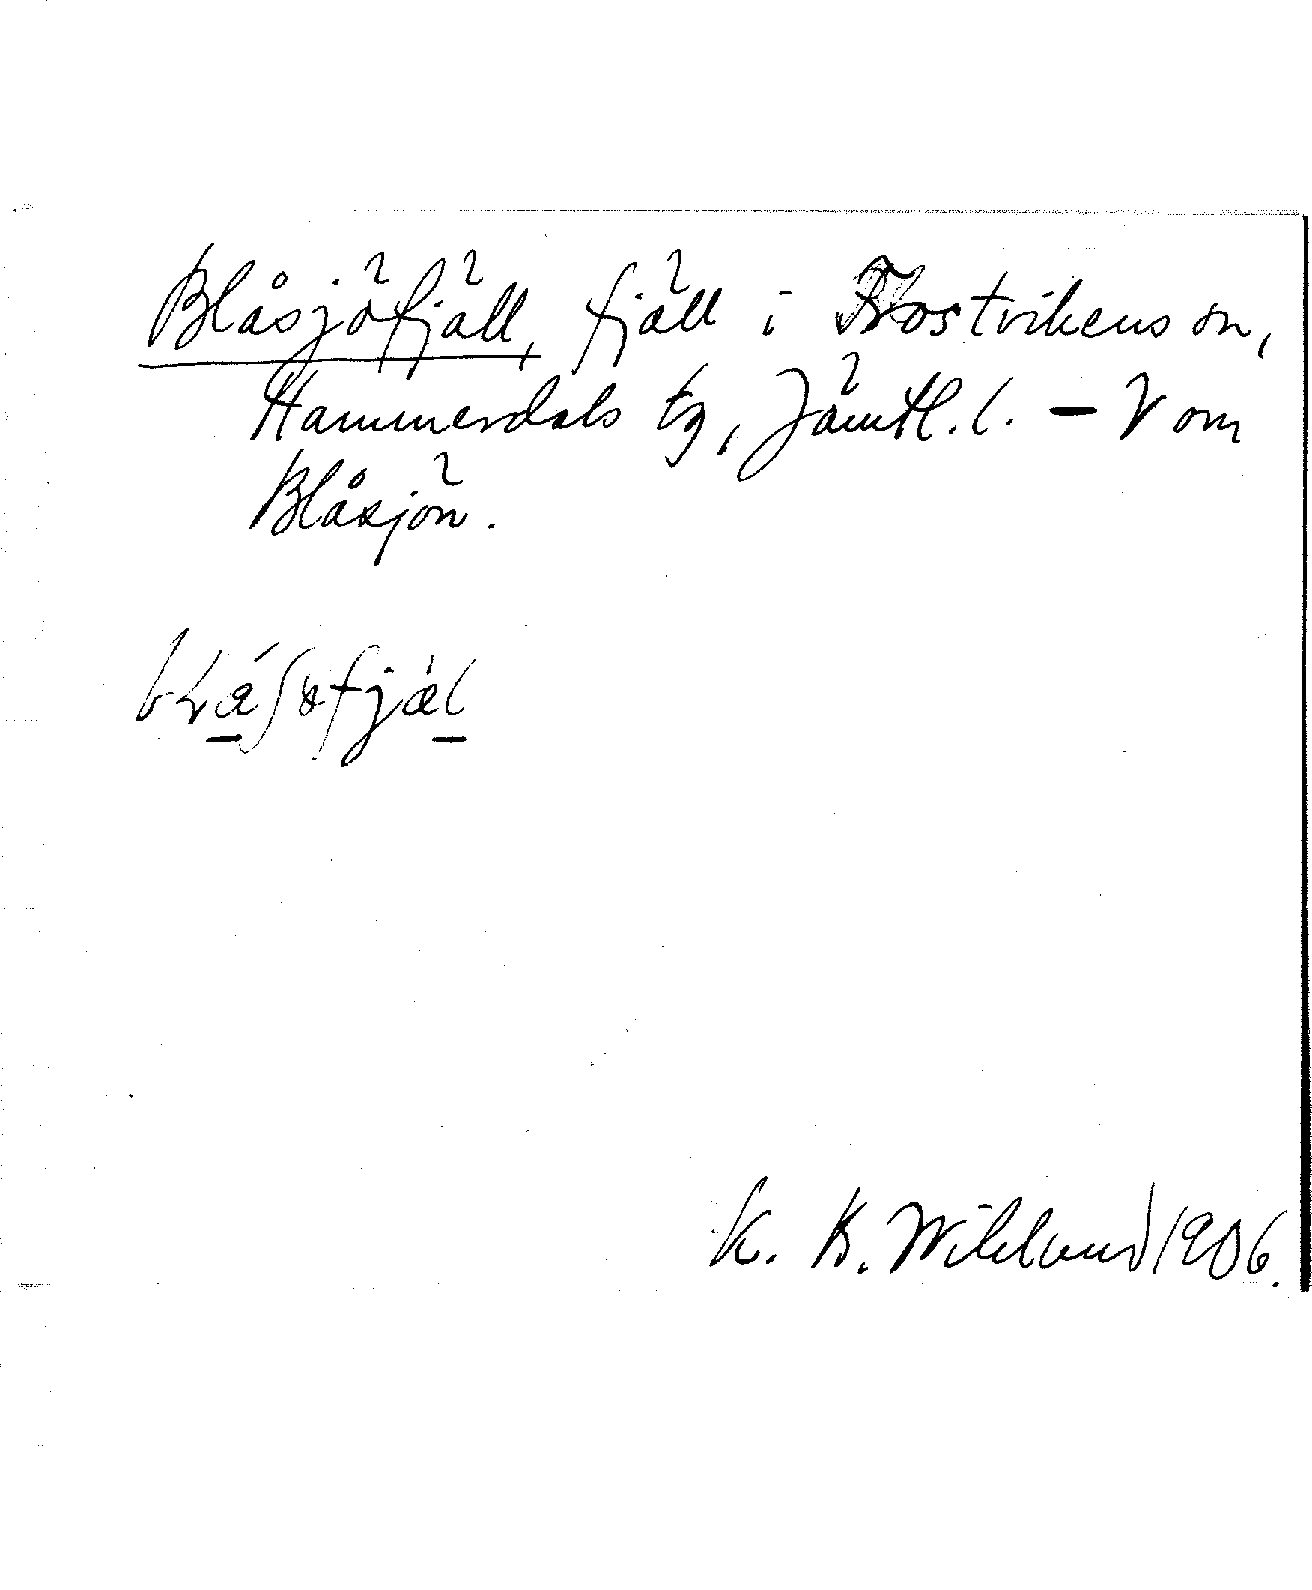 Blåsjöfjäll, fjäll i Frostvikens sn,
Hammerdals tg, Jämtl. l. – V om
Blåsjön.
K. B. Wiklund 1906.